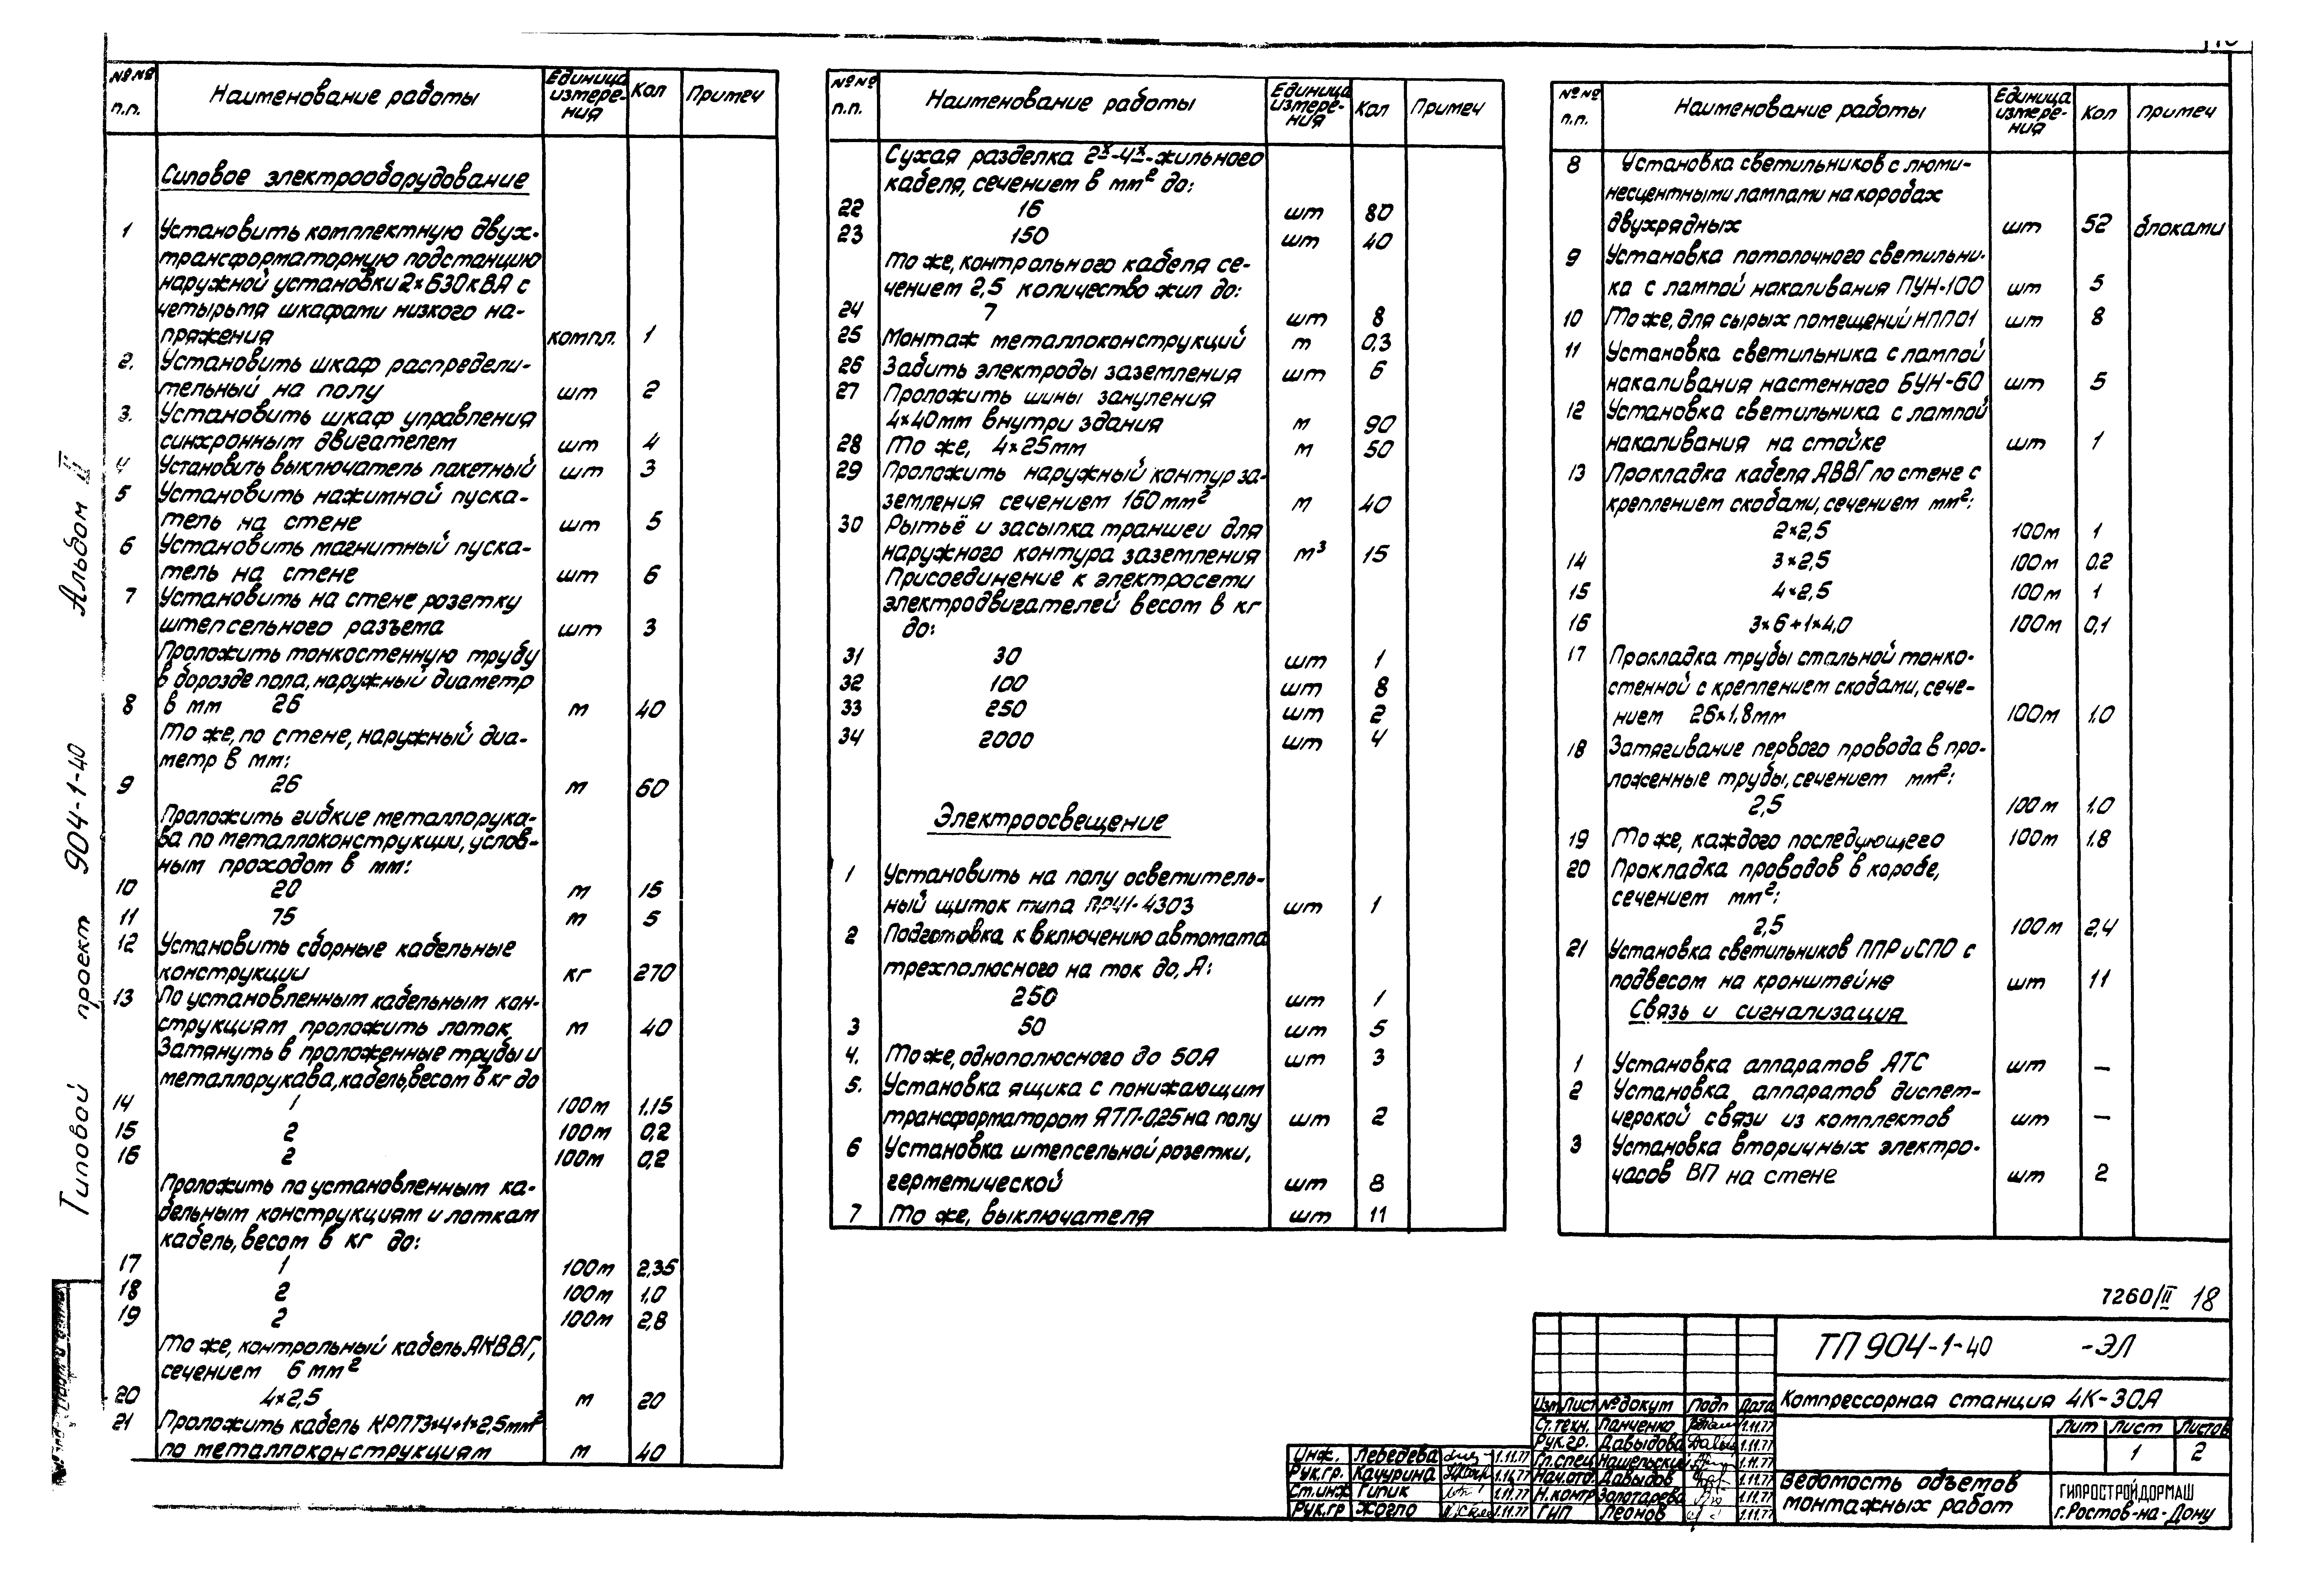 Типовой проект 904-1-40 Альбом II
№№ п.п. Наименование работы Единица измере- ния Кол Примеч
Силовое электрооборудование
1 Установить комплектную двух-
трансформаторную подстанцию
наружной установки 2×630кВА с
четырьмя шкафами низкого на-
пряжения компл. 1
2. Установить шкаф распредели-
тельный на полу шт 2
3. Установить шкаф управления
синхронным двигателем шт 4
4 Установить выключатель пакетный шт 3
5 Установить нажимной пуска-
тель на стене шт 5
6 Установить магнитный пуска-
тель на стене шт 6
7 Установить на стене розетку
штепсельного разъема шт 3
Проложить тонкостенную трубу
в борозде пола, наружный диаметр
8 в мм 26 м 40
То же, по стене, наружный диа-
метр в мм:
9 26 м 60
Проложить гибкие металлорука-
ва по металлоконструкции, услов-
ным проходом в мм:
10 20 м 15
11 75 м 5
12 Установить сборные кабельные
конструкции кг 270
13 По установленным кабельным кон-
струкциям проложить лоток м 40
Затянуть в проложенные трубы и
металлорукава, кабель, весом в кг до
14 1 100м 1,15
15 2 100м 0,2
16 2 100м 0,2
Проложить по установленным ка-
бельным конструкциям и лоткам
кабель, весом в кг до:
17 1 100м 2,35
18 2 100м 1,0
19 2 100м 2,8
То же, контрольный кабель АКВВГ,
сечением 6 мм²
20 4×2,5 м 20
21 Проложить кабель КРПТ3×4+1×2,5мм²
по металлоконструкциям м 40
№№ п.п. Наименование работы Единица измере- ния Кол Примеч
Сухая разделка 2х-4х-жильного
кабеля, сечением в мм² до:
22 16 шт 80
23 150 шт 40
То же, контрольного кабеля се-
чением 2,5 количество жил до:
24 7 шт 8
25 Монтаж металлоконструкций т 0,3
26 Забить электроды заземления шт 6
27 Проложить шины зануления
4×40мм внутри здания м 90
28 То же, 4×25мм м 50
29 Проложить наружный контур за-
земления сечением 160мм² м 40
30 Рытьё и засыпка траншеи для
наружного контура заземления м³ 15
Присоединение к электросети
электродвигателей весом в кг
до:
31 30 шт 1
32 100 шт 8
33 250 шт 2
34 2000 шт 4
Электроосвещение
1 Установить на полу осветитель-
ный щиток типа ПР41-4303 шт 1
2 Подготовка к включению автомата
трехполюсного на ток до, А:
250 шт 1
3 50 шт 5
4. То же, однополюсного до 50А шт 3
5. Установка ящика с понижающим
трансформатором ЯТП-0.25 на полу шт 2
6 Установка штепсельной розетки,
герметической шт 8
7 То же, выключателя шт 11
№№ п.п. Наименование работы Единица измере- ния Кол Примеч
8 Установка светильников с люми-
несцентными лампами на коробах
двухрядных шт 52 блоками
9 Установка потолочного светильни-
ка с лампой накаливания ПУН-100 шт 5
10 То же, для сырых помещений НПП01 шт 8
11 Установка светильника с лампой
накаливания настенного БУН-60 шт 5
12 Установка светильника с лампой
накаливания на стойке шт 1
13 Прокладка кабеля АВВГ по стене с
креплением скобами, сечением мм²:
2×2,5 100м 1
14 3×2,5 100м 0.2
15 4×2,5 100м 1
16 3×6+1×4,0 100м 0,1
17 Прокладка трубы стальной тонко-
стенной с креплением скобами, сече-
нием 26×1,8мм 100м 1.0
18 Затягивание первого провода в про-
ложенные трубы, сечением мм²:
2,5 100м 1.0
19 То же, каждого последующего 100м 1.8
20 Прокладка проводов в коробе,
сечением мм²:
2,5 100м 2,4
21 Установка светильников ППР и СПО с
подвесом на кронштейне шт 11
Связь и сигнализация
1 Установка аппаратов АТС шт —
2 Установка аппаратов диспет-
черской связи из комплектов шт —
3 Установка вторичных электро-
часов ВП на стене шт 2
7260/II 18
ТП 904-1-40 -ЭЛ
Компрессорная станция 4К-30А
Изм Лист № докум Подп Дата
Ст.техн. Панченко 1.11.77
Рук.гр. Давыдова 1.11.77
Гл.спец 1.11.77
Нач.отд. Давыдов 1.11.77
Н.контр Золотарева 1.11.77
ГИП Леонов 1.11.77
Инж. Лебедева 1.11.77
Рук.гр. Качурина 1.11.77
Ст.инж Гипик 1.11.77
Рук.гр Жогло 1.11.77
Лит Лист Листов
1 2
Ведомость объемов
монтажных работ
ГИПРОСТРОЙДОРМАШ
г.Ростов-на-Дону